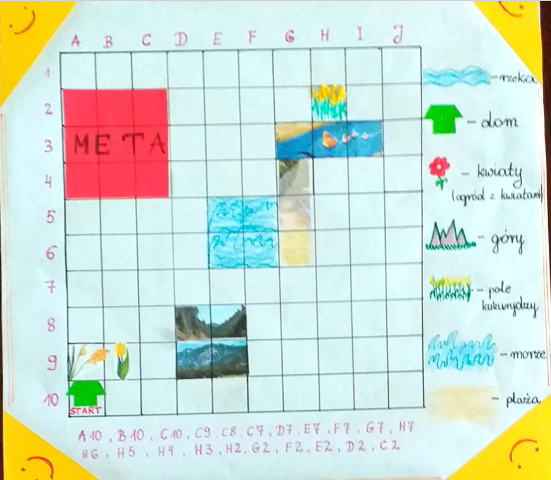 A B C D E F G H I J
1
2
3
4
5
6
7
8
9
10
META
START
- rzeka
- dom
- kwiaty
(ogród z kwiatami)
- góry
- pole
kukurydzy
- morze
- plaża
A10, B10, C10, C9, C8, C7, D7, E7, F7, G7, H7
H6, H5, H4, H3, H2, G2, F2, E2, D2, C2